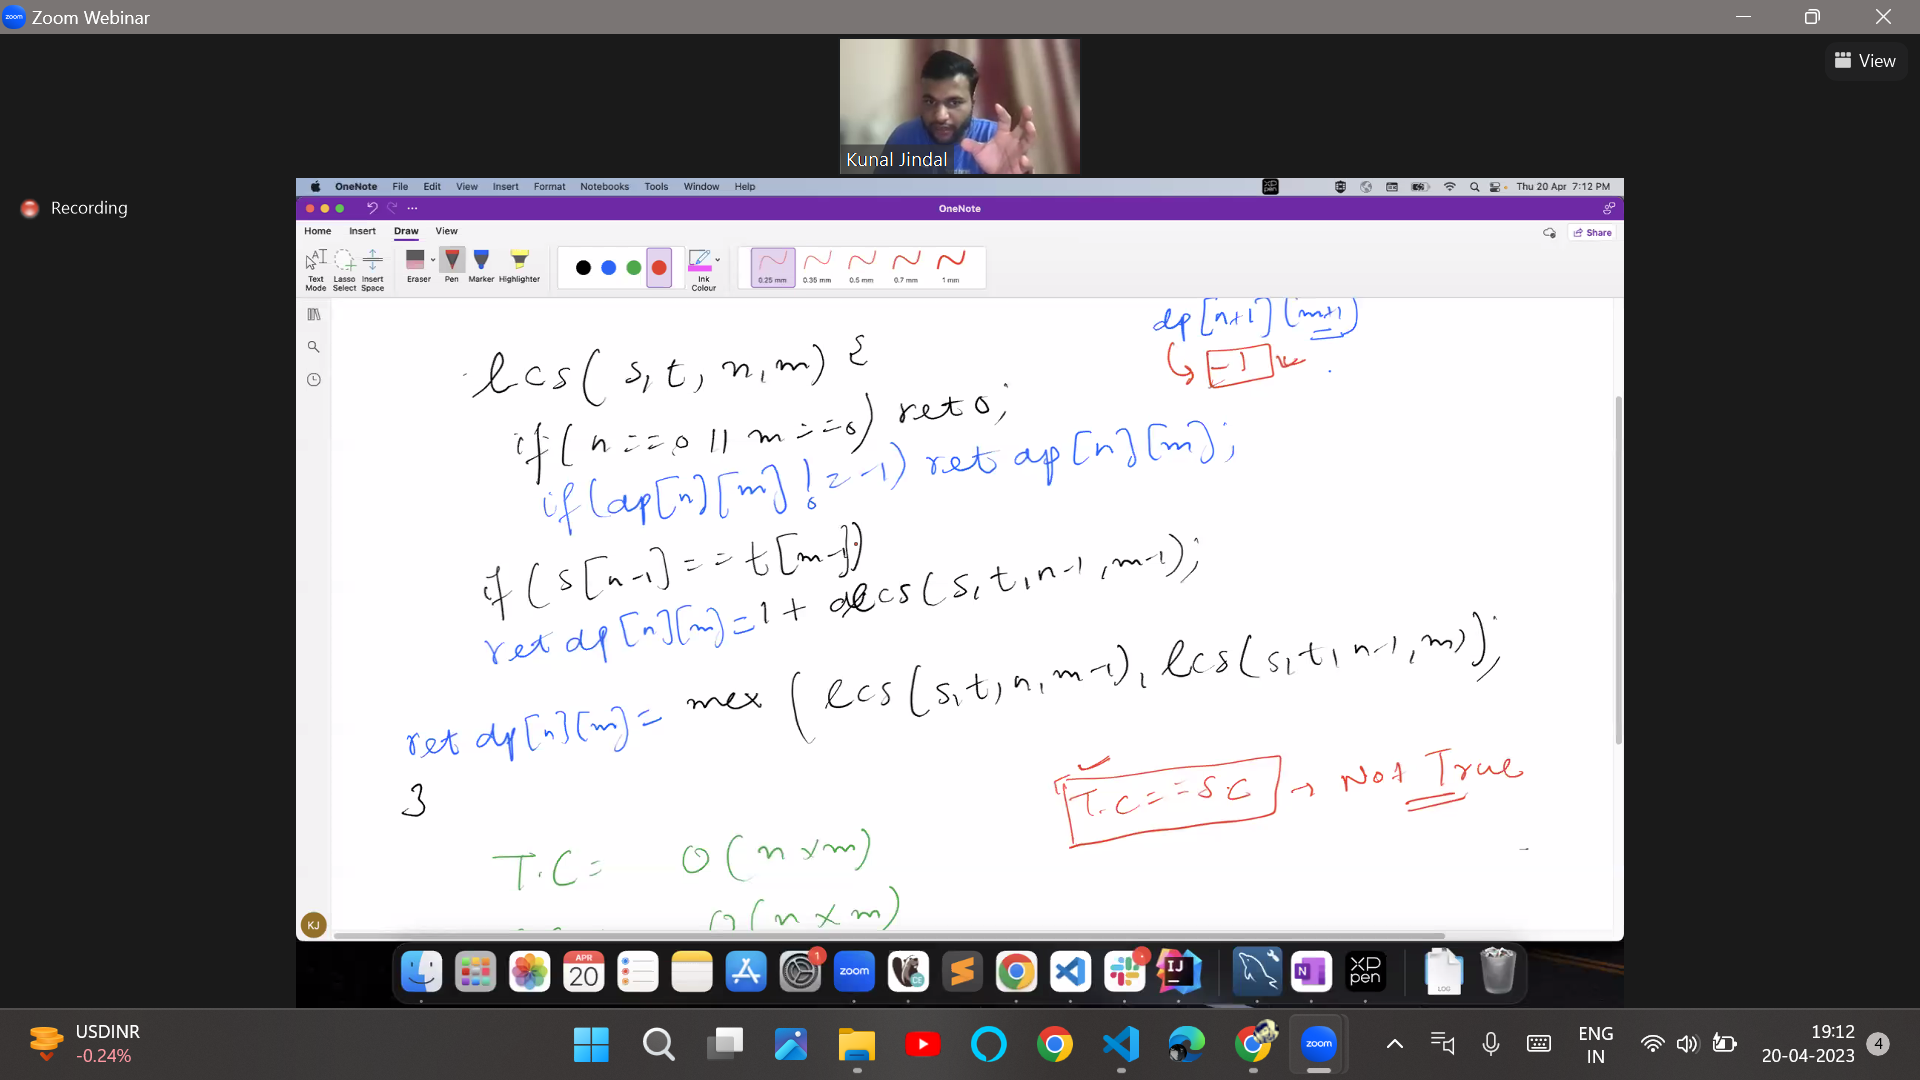 Zoom Webinar
View
Kunal Jindal
Recording
OneNote File Edit View Insert Format Notebooks Tools Window Help
Thu 20 Apr 7:12 PM
OneNote
Home Insert Draw View
Share
Text Mode
Lasso Select
Insert Space
Eraser
Pen
Marker
Highlighter
Ink Colour
0.25 mm
0.35 mm
0.5 mm
0.7 mm
1 mm
dp[n+1][m+1]
-1
lcs(s,t,n,m) {
if(n==0 || m==0) ret 0;
if(dp[n][m] != -1) ret dp[n][m];
if(s[n-1]==t[m-1])
ret dp[n][m]=1+lcs(s,t,n-1,m-1);
ret dp[n][m]= max(lcs(s,t,n,m-1), lcs(s,t,n-1,m));
}
T.C==S.C → Not True
T.C= O(n×m)
O(n×m)
KJ
APR 20
1
zoom
CE
IJ
N
XP pen
LOG
USDINR
-0.24%
zoom
ENG
IN
19:12
20-04-2023
4